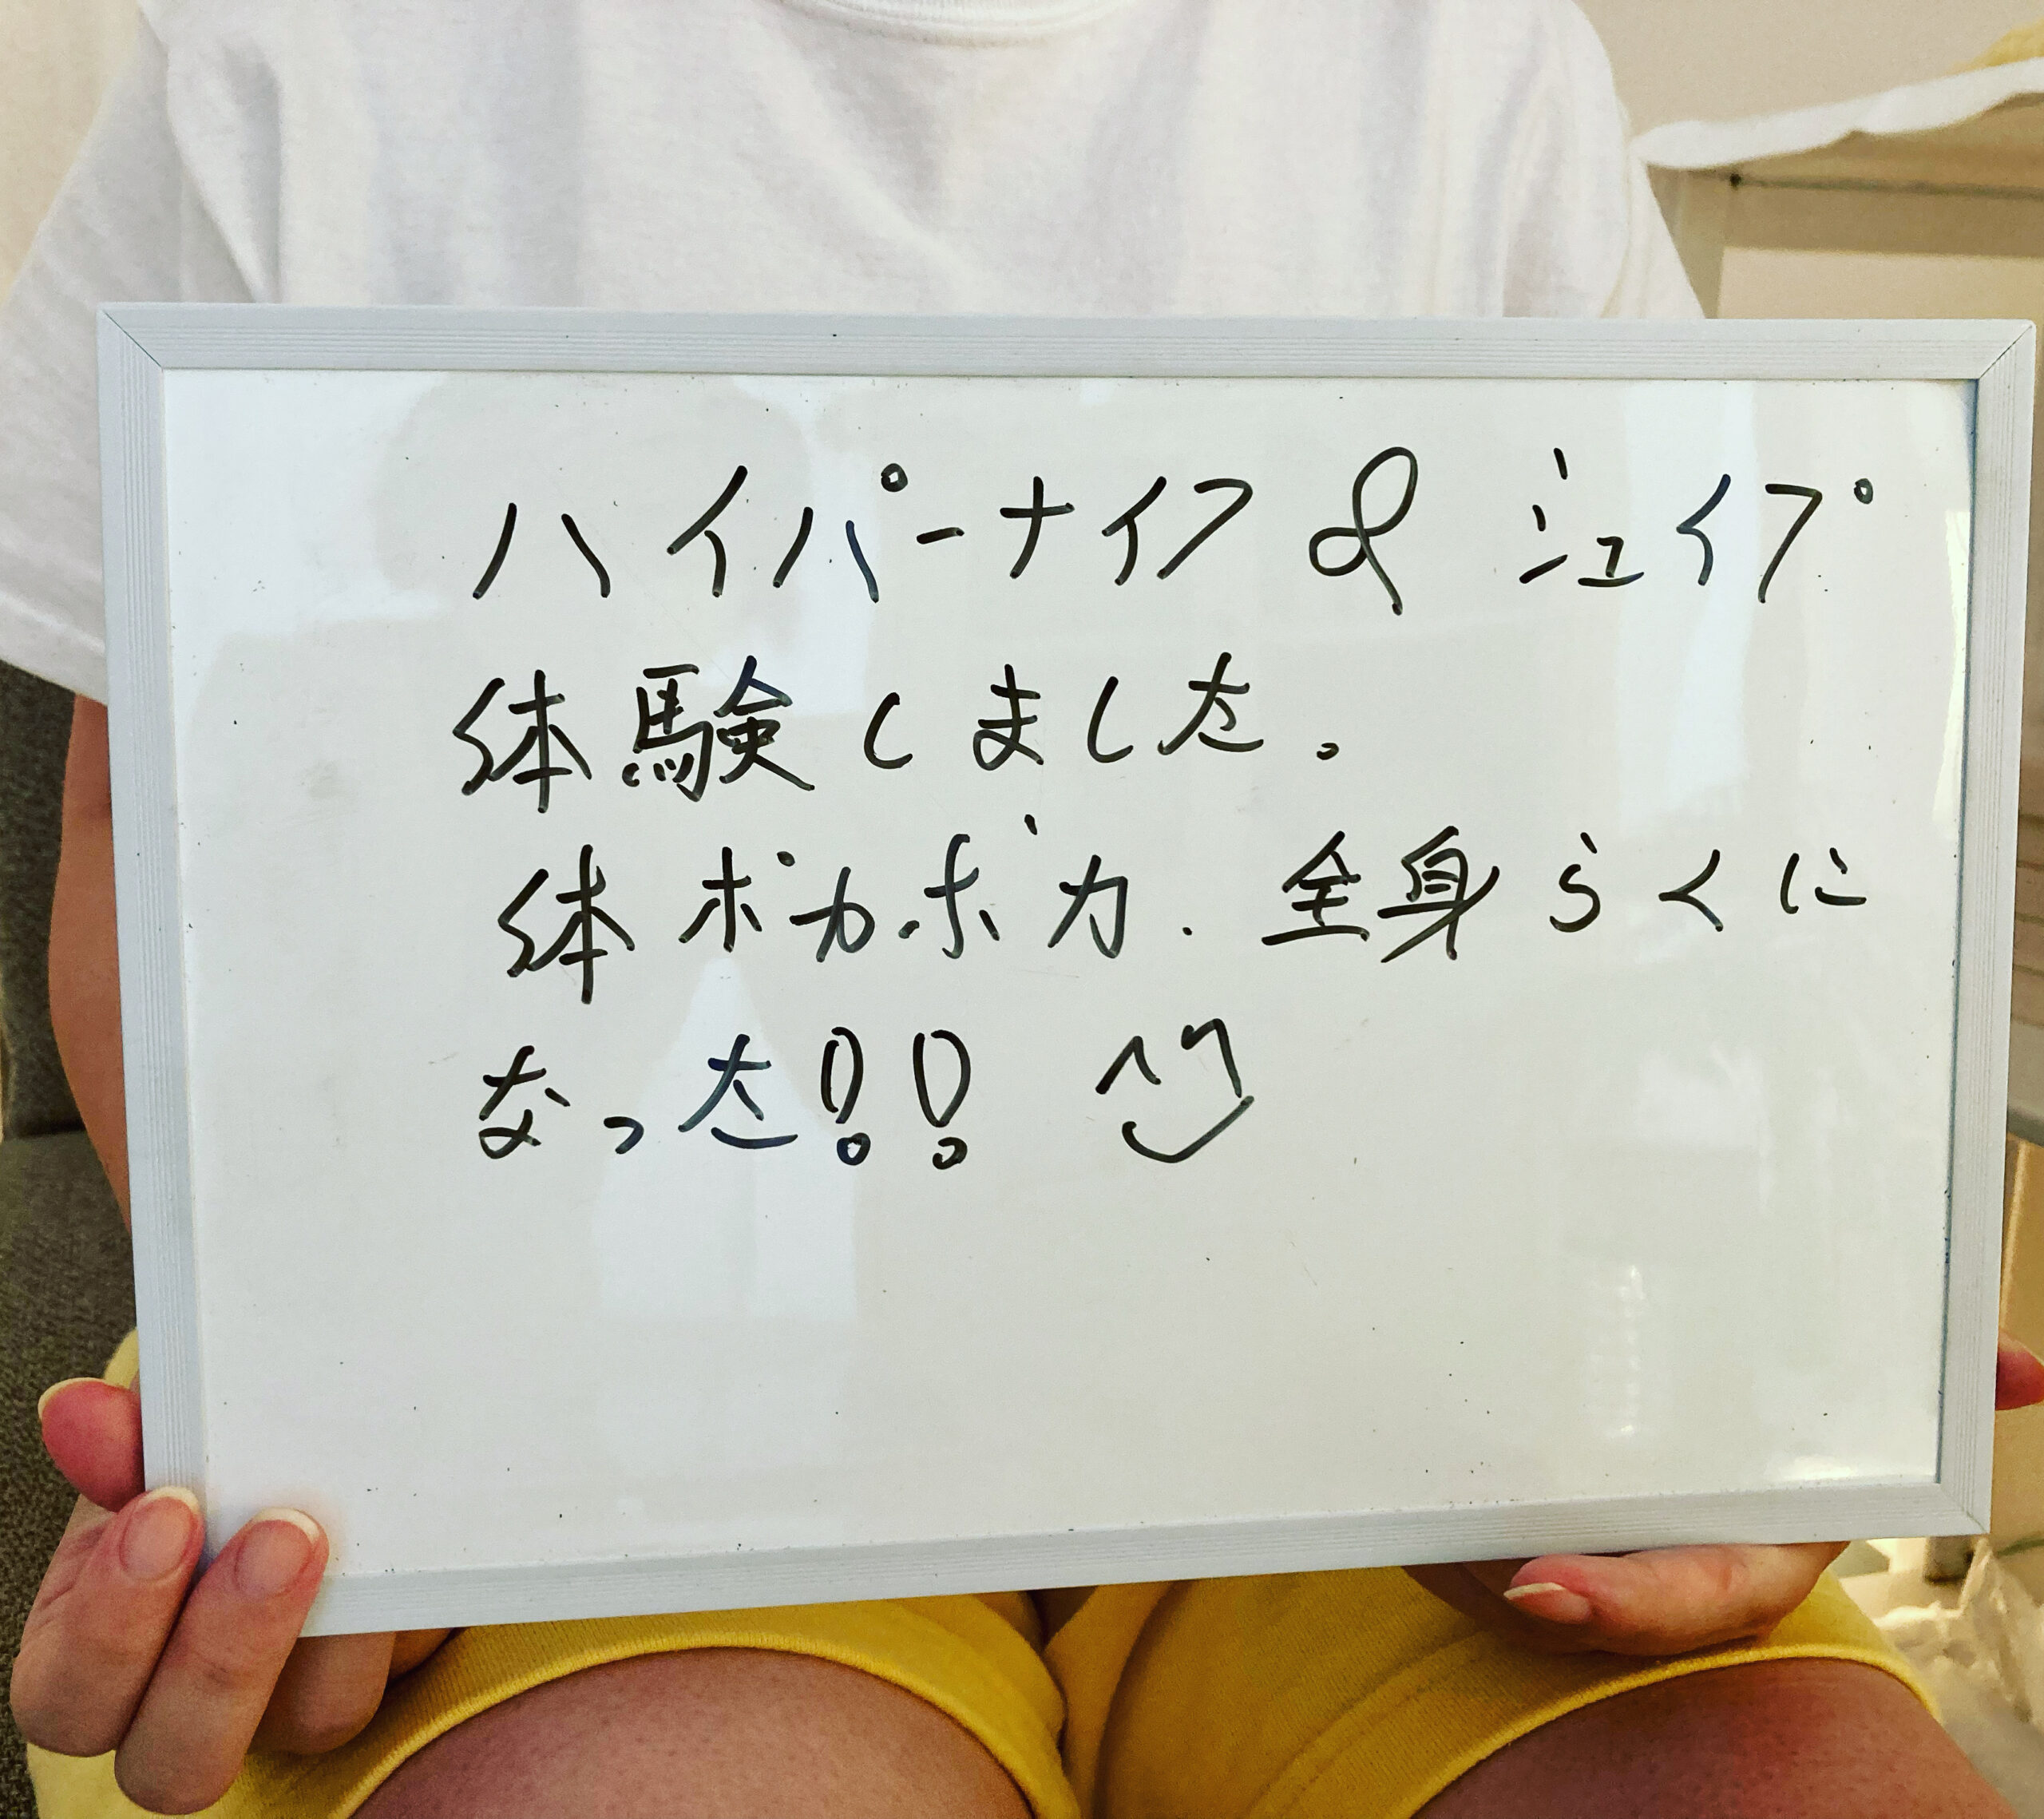 ハイパーナイフ & シェイプ
体験しました。
体ポカポカ. 全身らくに
なった!!